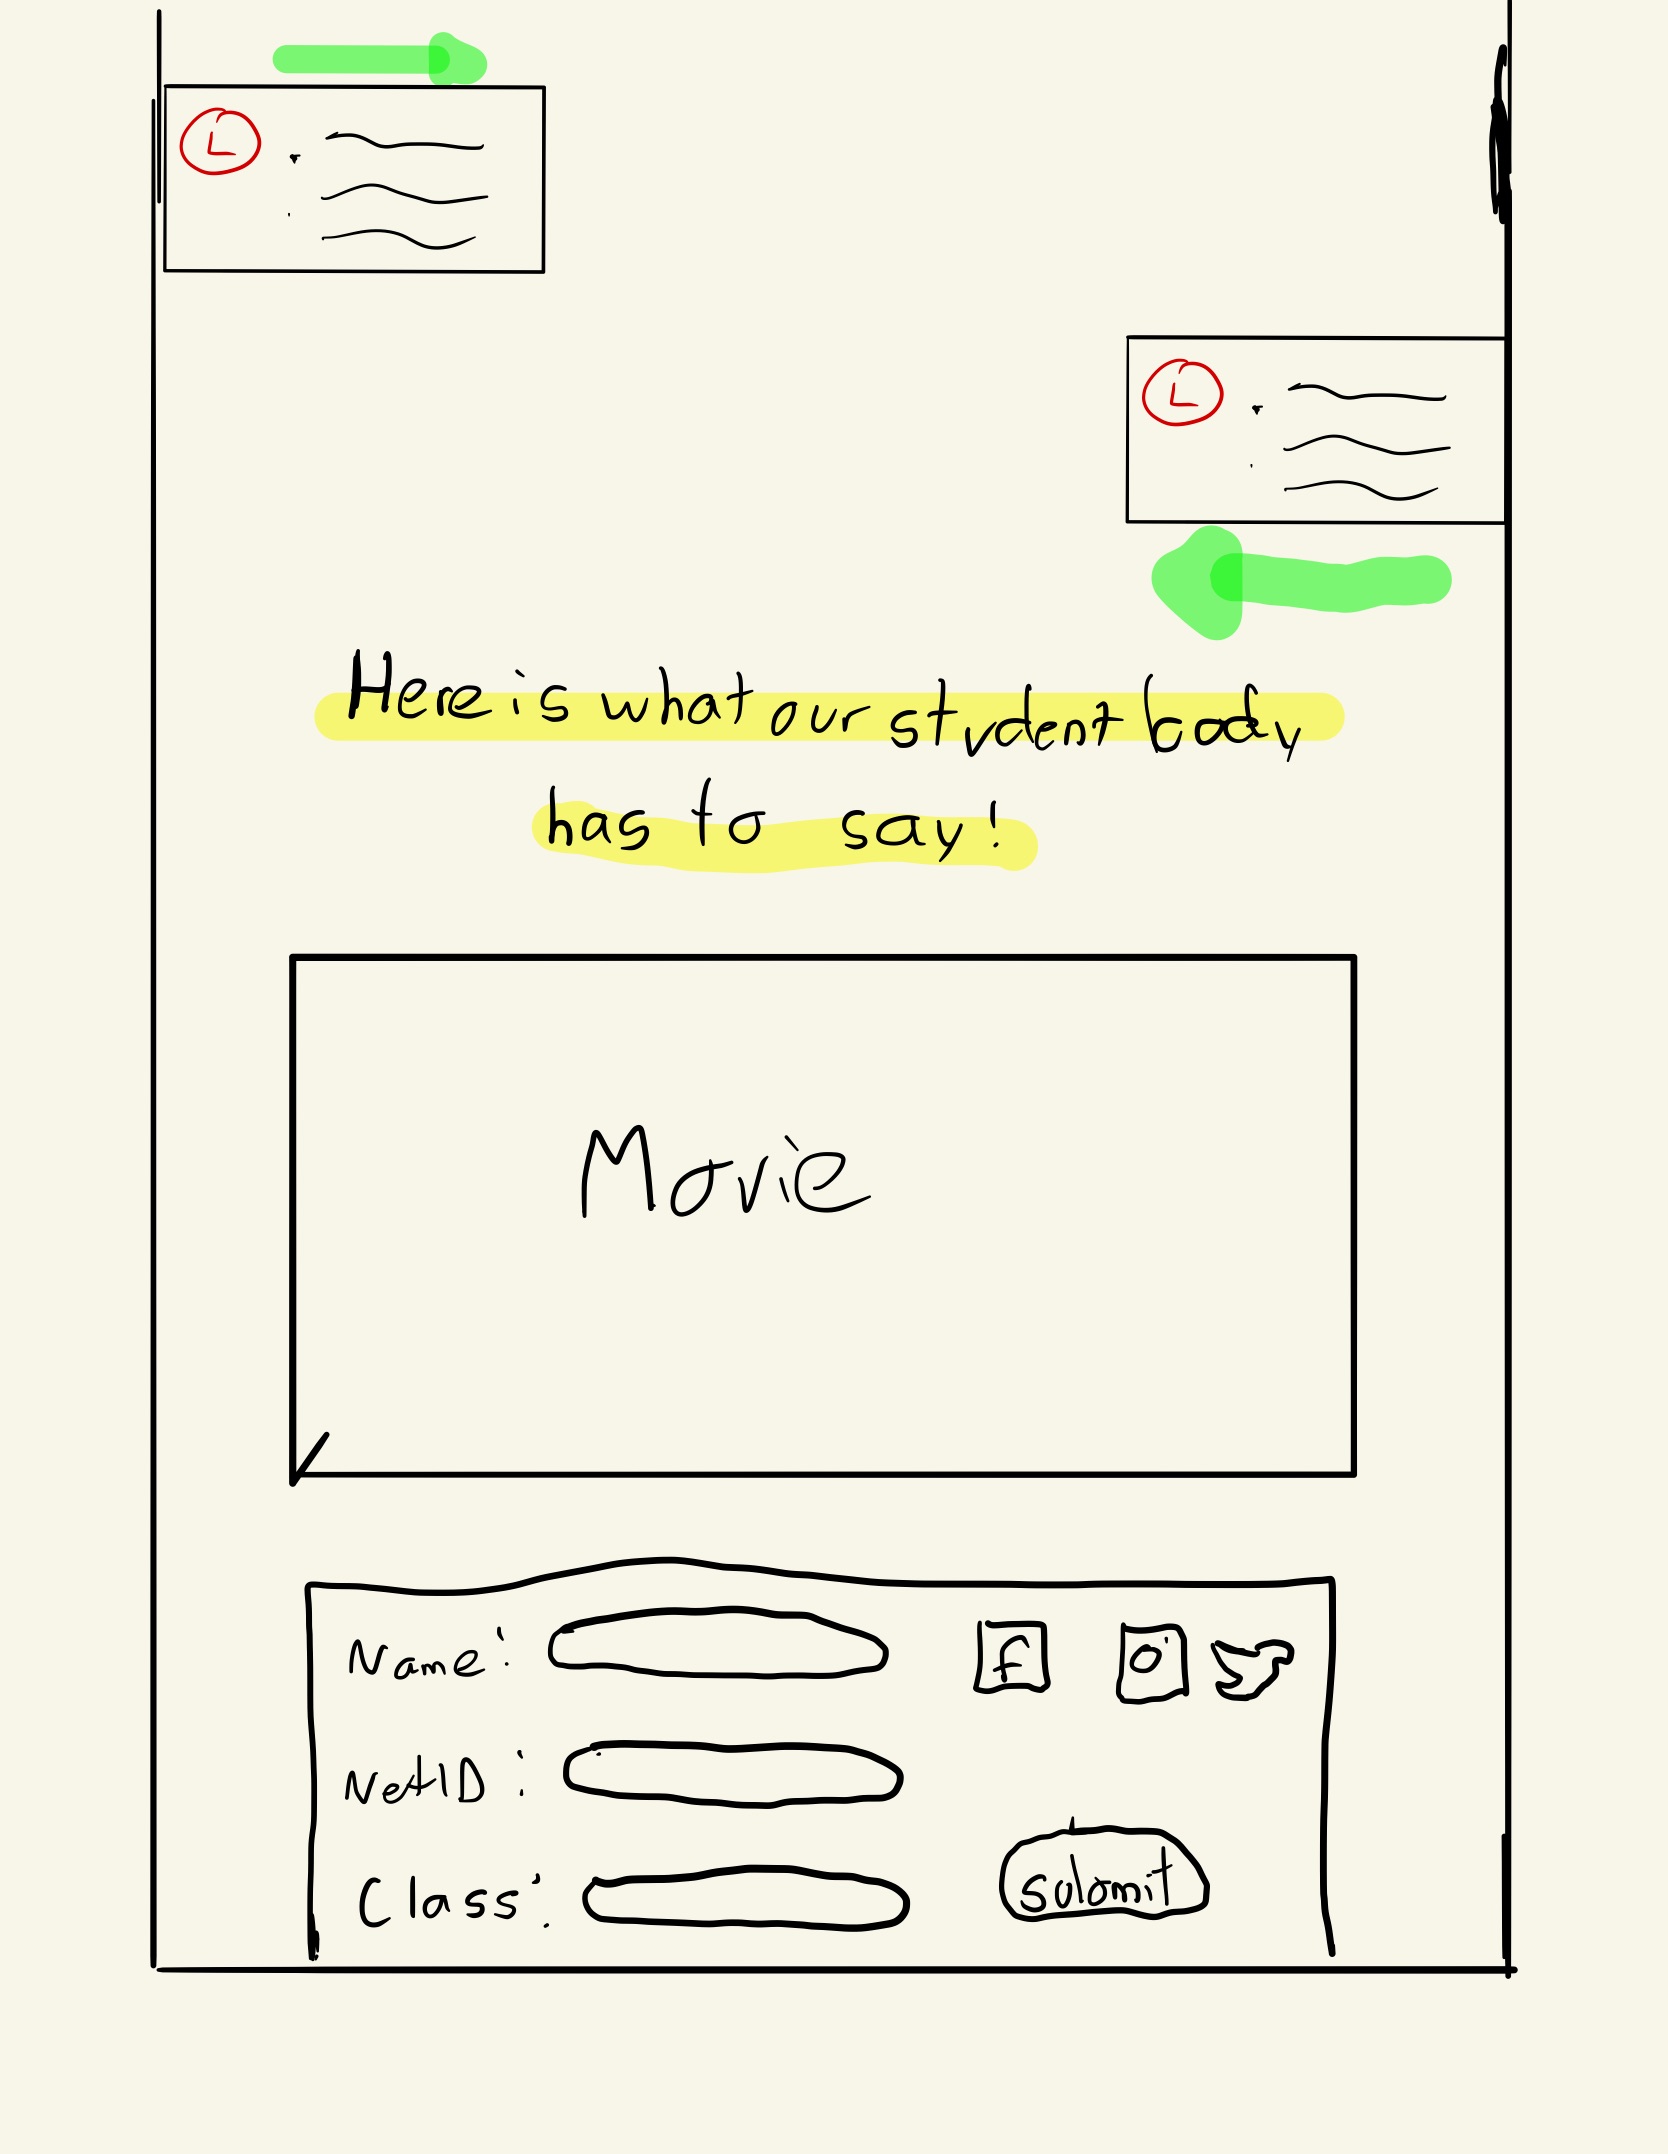 L
L
Here is what our student body
has to say!
Movie
Name: f
NetID:
Class: submit